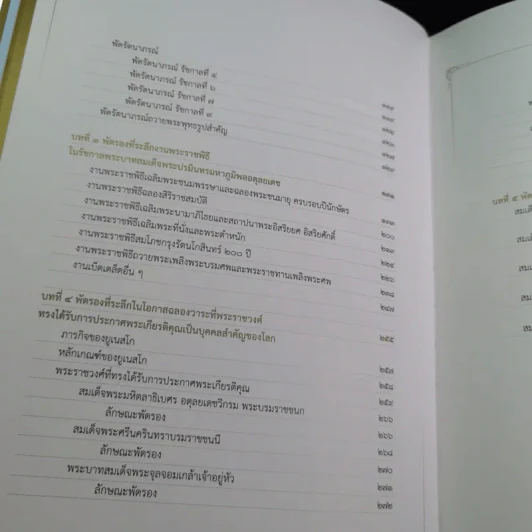 พัดรัตนาภรณ์
พัดรัตนาภรณ์ รัชกาลที่ ๔
พัดรัตนาภรณ์ รัชกาลที่ ๖
พัดรัตนาภรณ์ รัชกาลที่ ๗
พัดรัตนาภรณ์ รัชกาลที่ ๙
พัดรัตนาภรณ์ถวายพระพุทธรูปสำคัญ
บทที่ ๓ พัดรองที่ระลึกงานพระราชพิธี
ในรัชกาลพระบาทสมเด็จพระปรมินทรมหาภูมิพลอดุลยเดช
งานพระราชพิธีเฉลิมพระชนมพรรษาและฉลองพระชนมายุ ครบรอบปีนักษัตร
งานพระราชพิธีฉลองสิริราชสมบัติ
งานพระราชพิธีเฉลิมพระนามาภิไธยและสถาปนาพระอิสริยยศ อิสริยศักดิ์ ๒๐๐
งานพระราชพิธีเฉลิมพระที่นั่งและพระตำหนัก
งานพระราชพิธีสมโภชกรุงรัตนโกสินทร์ ๒๐๐ ปี ๒๒๕
งานพระราชพิธีถวายพระเพลิงพระบรมศพและพระราชทานเพลิงพระศพ
งานเบ็ดเตล็ดอื่น ๆ ๒๔๗
บทที่ ๔ พัดรองที่ระลึกในโอกาสฉลองวาระที่พระราชวงศ์
ทรงได้รับการประกาศพระเกียรติคุณเป็นบุคคลสำคัญของโลก ๒๕๕
ภารกิจของยูเนสโก ๒๕๗
หลักเกณฑ์ของยูเนสโก ๒๕๘
พระราชวงศ์ที่ทรงได้รับการประกาศพระเกียรติคุณ ๒๕๙
สมเด็จพระมหิตลาธิเบศร อดุลยเดชวิกรม พระบรมราชชนก ๒๖๖
ลักษณะพัดรอง ๒๖๖
สมเด็จพระศรีนครินทราบรมราชชนนี ๒๖๘
ลักษณะพัดรอง ๒๗๐
พระบาทสมเด็จพระจุลจอมเกล้าเจ้าอยู่หัว ๒๗๑
ลักษณะพัดรอง ๒๗๒
บทที่ ๕ พัด
สมเด็
สมเด็
สมเด็
สมเด็